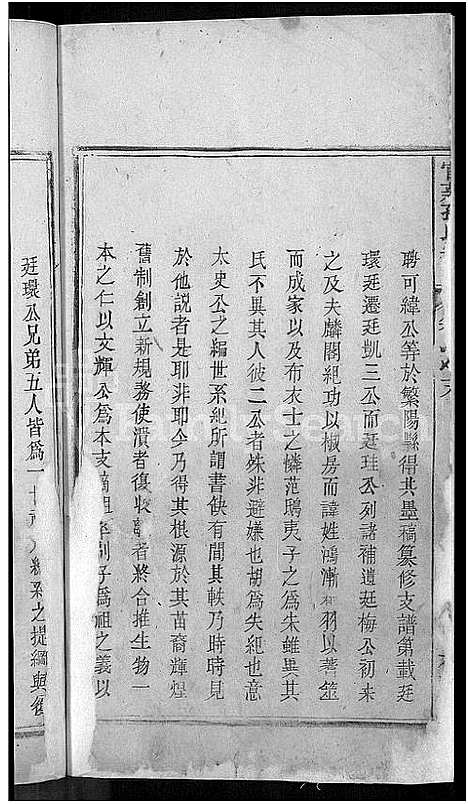 聘可緯公等於繁陽縣得其墨稿纂修支譜第載廷
環廷遷廷凱三公而廷珪公列諸補遺廷梅公初未
之及夫麟閣紀功以椒房而諱姓鴻漸 羽以著筮
而成家以及布衣士之憐范鴟夷子之為朱雖異其
氏不異其人彼二公者殊非避嫌也胡為失紀也意
太史公之編世系紀所謂書缺有間其軼乃時時見
於他說者是耶非耶今乃得其根源於其苗裔輝煌
舊制創立新規務使潰者復收離者將合推生物一
本之仁以文輝公為本支 祖 別子為祖之義以
廷環公兄弟五人皆為一 系之提綱與後